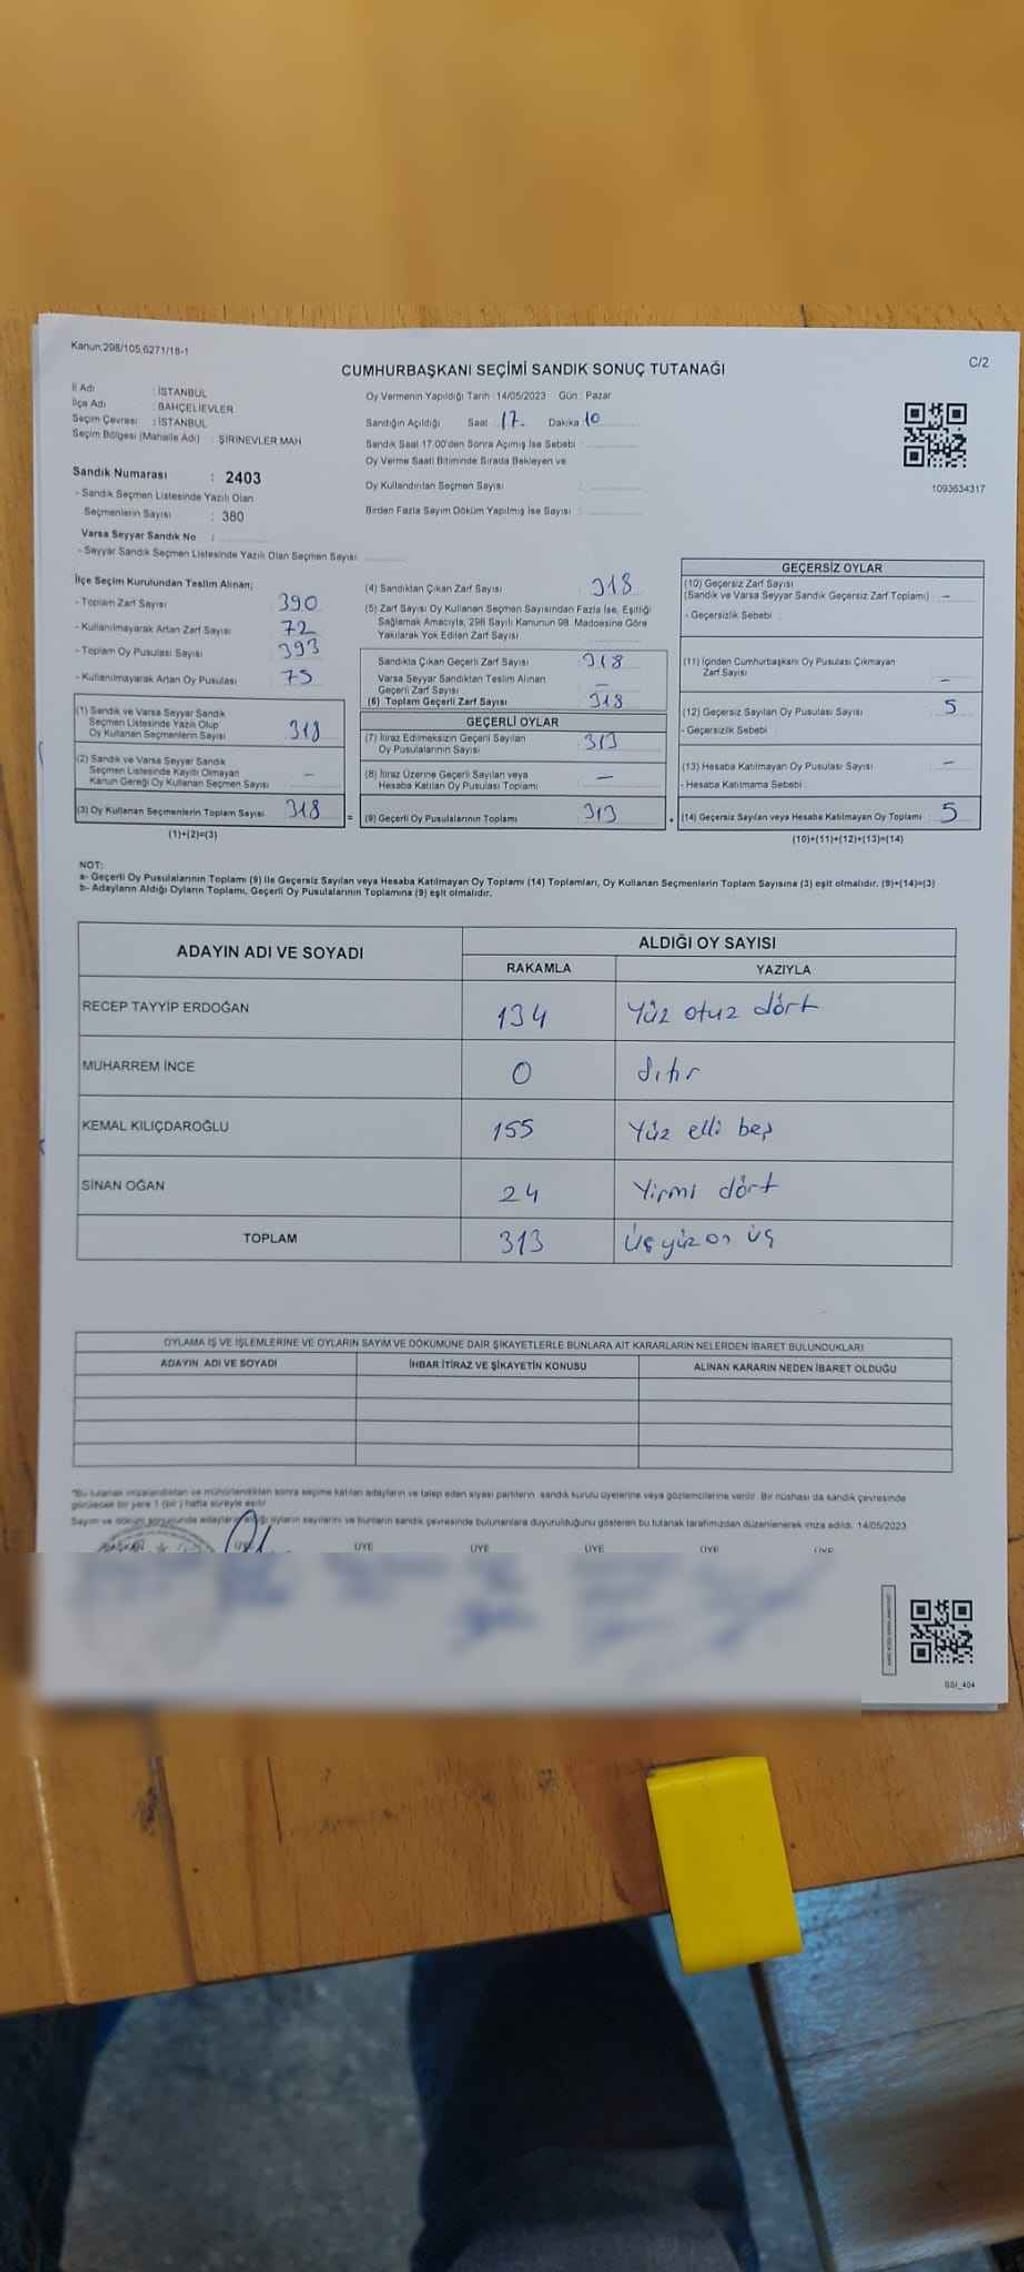 Kanun;298/105,6271/18-1
CUMHURBAŞKANI SEÇİMİ SANDIK SONUÇ TUTANAĞI
C/2
İl Adı : İSTANBUL
İlçe Adı : BAHÇELİEVLER
Seçim Çevresi : İSTANBUL
Seçim Bölgesi (Mahalle Adı) : ŞİRİNEVLER MAH
Sandık Numarası : 2403
- Sandık Seçmen Listesinde Yazılı Olan
Seçmenlerin Sayısı : 380
Varsa Seyyar Sandık No :
- Seyyar Sandık Seçmen Listesinde Yazılı Olan Seçmen Sayısı
Oy Vermenin Yapıldığı Tarih : 14/05/2023 Gün : Pazar
Sandığın Açıldığı Saat 17. Dakika 10
Sandık Saat 17:00'den Sonra Açılmış İse Sebebi :
Oy Verme Saati Bitiminde Sırada Bekleyen ve
Oy Kullandırılan Seçmen Sayısı :
Birden Fazla Sayım Döküm Yapılmış İse Sayısı :
1093634317
İlçe Seçim Kurulundan Teslim Alınan;
- Toplam Zarf Sayısı 390
- Kullanılmayarak Artan Zarf Sayısı 72
- Toplam Oy Pusulası Sayısı 393
- Kullanılmayarak Artan Oy Pusulası 75
(1) Sandık ve Varsa Seyyar Sandık
Seçmen Listesinde Yazılı Olup
Oy Kullanan Seçmenlerin Sayısı 318
(2) Sandık ve Varsa Seyyar Sandık
Seçmen Listesinde Kayıtlı Olmayan
Kanun Gereği Oy Kullanan Seçmen Sayısı –
(3) Oy Kullanan Seçmenlerin Toplam Sayısı 318
(1)+(2)=(3)
(4) Sandıktan Çıkan Zarf Sayısı 318
(5) Zarf Sayısı Oy Kullanan Seçmen Sayısından Fazla İse, Eşitliği
Sağlamak Amacıyla, 298 Sayılı Kanunun 98. Maddesine Göre
Yakılarak Yok Edilen Zarf Sayısı
Sandıkta Çıkan Geçerli Zarf Sayısı 318
Varsa Seyyar Sandıktan Teslim Alınan
Geçerli Zarf Sayısı –
(6) Toplam Geçerli Zarf Sayısı 318
GEÇERLİ OYLAR
(7) İtiraz Edilmeksizin Geçerli Sayılan
Oy Pusulalarının Sayısı 313
(8) İtiraz Üzerine Geçerli Sayılan veya
Hesaba Katılan Oy Pusulası Toplamı –
= (9) Geçerli Oy Pusulalarının Toplamı 313
GEÇERSİZ OYLAR
(10) Geçersiz Zarf Sayısı
(Sandık ve Varsa Seyyar Sandık Geçersiz Zarf Toplamı) –
- Geçersizlik Sebebi :
(11) İçinden Cumhurbaşkanı Oy Pusulası Çıkmayan
Zarf Sayısı –
(12) Geçersiz Sayılan Oy Pusulası Sayısı 5
- Geçersizlik Sebebi
(13) Hesaba Katılmayan Oy Pusulası Sayısı –
- Hesaba Katılmama Sebebi
+ (14) Geçersiz Sayılan veya Hesaba Katılmayan Oy Toplamı 5
(10)+(11)+(12)+(13)=(14)
NOT:
a- Geçerli Oy Pusulalarının Toplamı (9) ile Geçersiz Sayılan veya Hesaba Katılmayan Oy Toplamı (14) Toplamları, Oy Kullanan Seçmenlerin Toplam Sayısına (3) eşit olmalıdır. (9)+(14)=(3)
b- Adayların Aldığı Oyların Toplamı, Geçerli Oy Pusulalarının Toplamına (9) eşit olmalıdır.
ADAYIN ADI VE SOYADI
ALDIĞI OY SAYISI
RAKAMLA YAZIYLA
RECEP TAYYİP ERDOĞAN 134 Yüz otuz dört
MUHARREM İNCE 0 Sıfır
KEMAL KILIÇDAROĞLU 155 Yüz elli beş
SİNAN OĞAN 24 Yirmi dört
TOPLAM 313 Üç yüz on üç
OYLAMA İŞ VE İŞLEMLERİNE VE OYLARIN SAYIM VE DÖKÜMÜNE DAİR ŞİKAYETLERLE BUNLARA AİT KARARLARIN NELERDEN İBARET BULUNDUKLARI
ADAYIN ADI VE SOYADI İHBAR İTİRAZ VE ŞİKAYETİN KONUSU ALINAN KARARIN NEDEN İBARET OLDUĞU
"Bu tutanak imzalandıktan ve mühürlendikten sonra seçime katılan adayların ve talep eden siyasi partilerin sandık kurulu üyelerine veya gözlemcilerine verilir. Bir nüshası da sandık çevresinde
görülecek bir yere 1 (bir) hafta süreyle asılır.
Sayım ve döküm sonunda adayların aldığı oyların sayılarını ve bunların sandık çevresinde bulunanlara duyurulduğunu gösteren bu tutanak tarafımızdan düzenlenerek imza edildi. 14/05/2023
ÜYE ÜYE ÜYE ÜYE ÜYE ÜYE